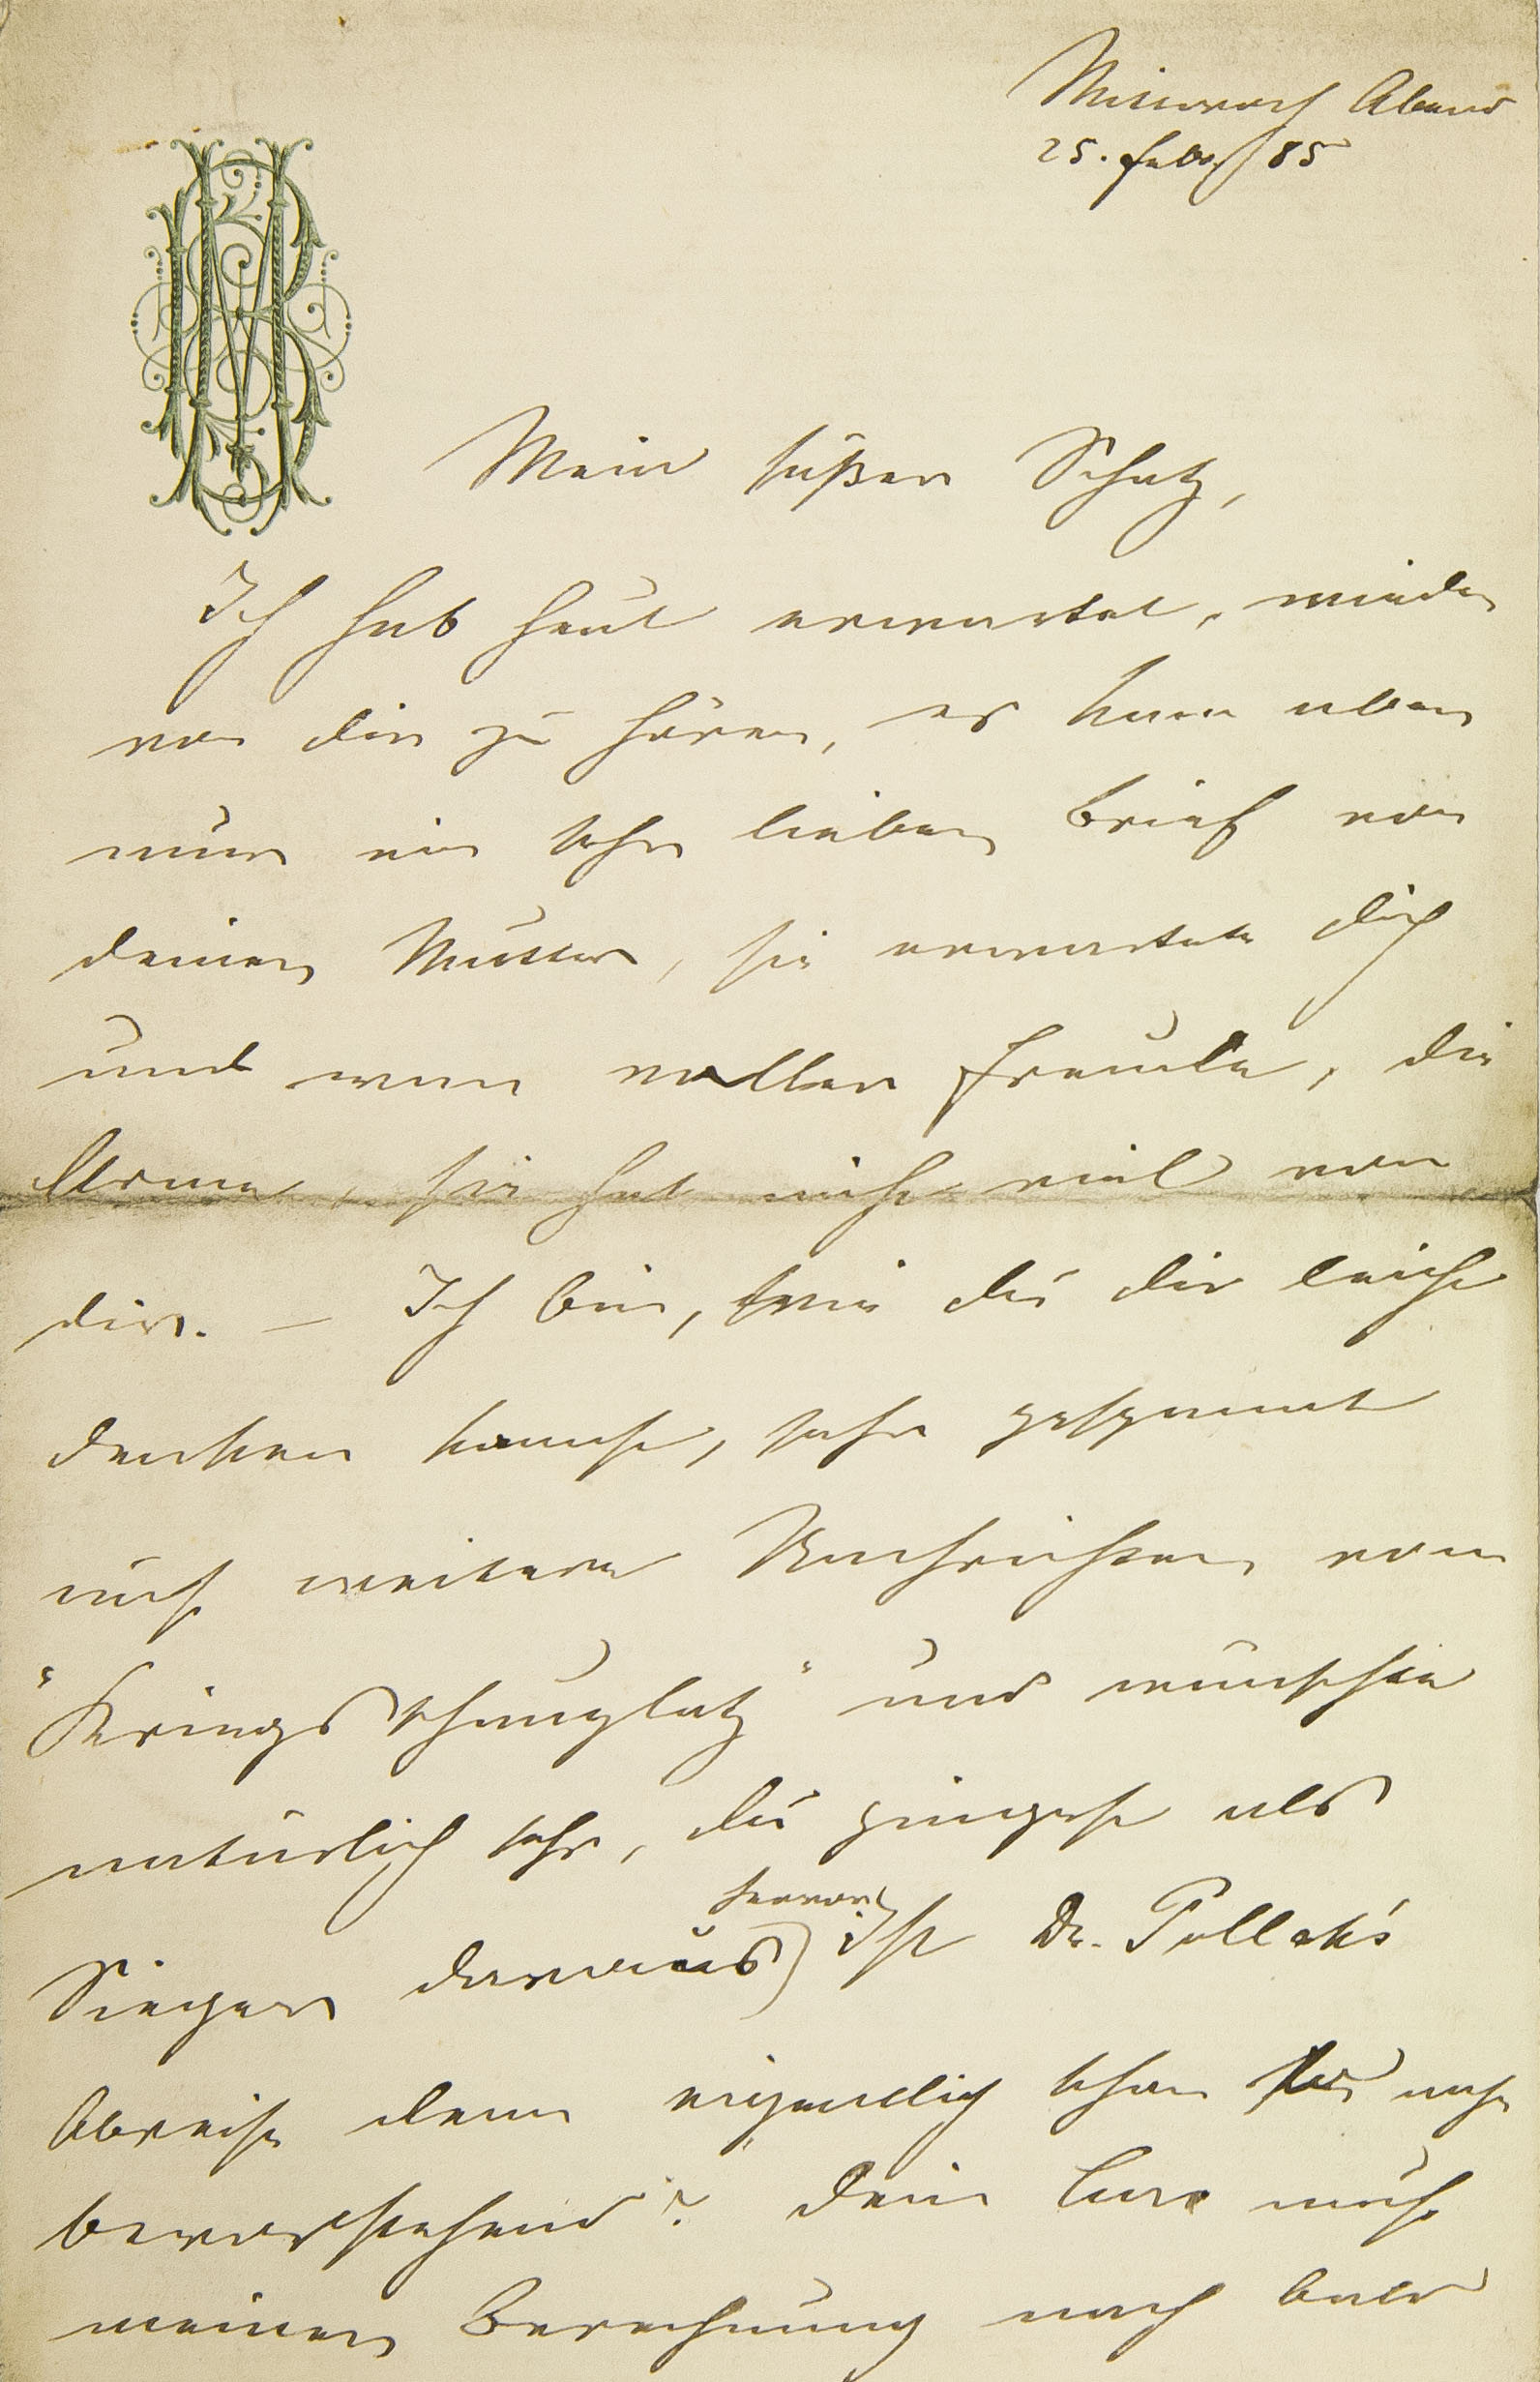 Mittwoch Abend
25. Febr. 85
Mein süßer Schatz,
Ich hab heut erwartet, wieder
von dir zu hören, es kam aber
nur ein sehr lieber Brief von
deiner Mutter, sie erwartete dich
und war voller Freude, die
Arme, sie hat nicht viel von
dir. – Ich bin, wie du dir leicht
denken kannst, sehr gespannt
auf weitere Nachrichten vom
"Kriegsschauplatz" und wünschte
natürlich sehr, du gingest als
Sieger daraus hervor) ist Dr. Pollak's
Abreise denn eigentlich schon so nahe
bevorstehend? Dein Curs muß
meiner Berechnung nach bald